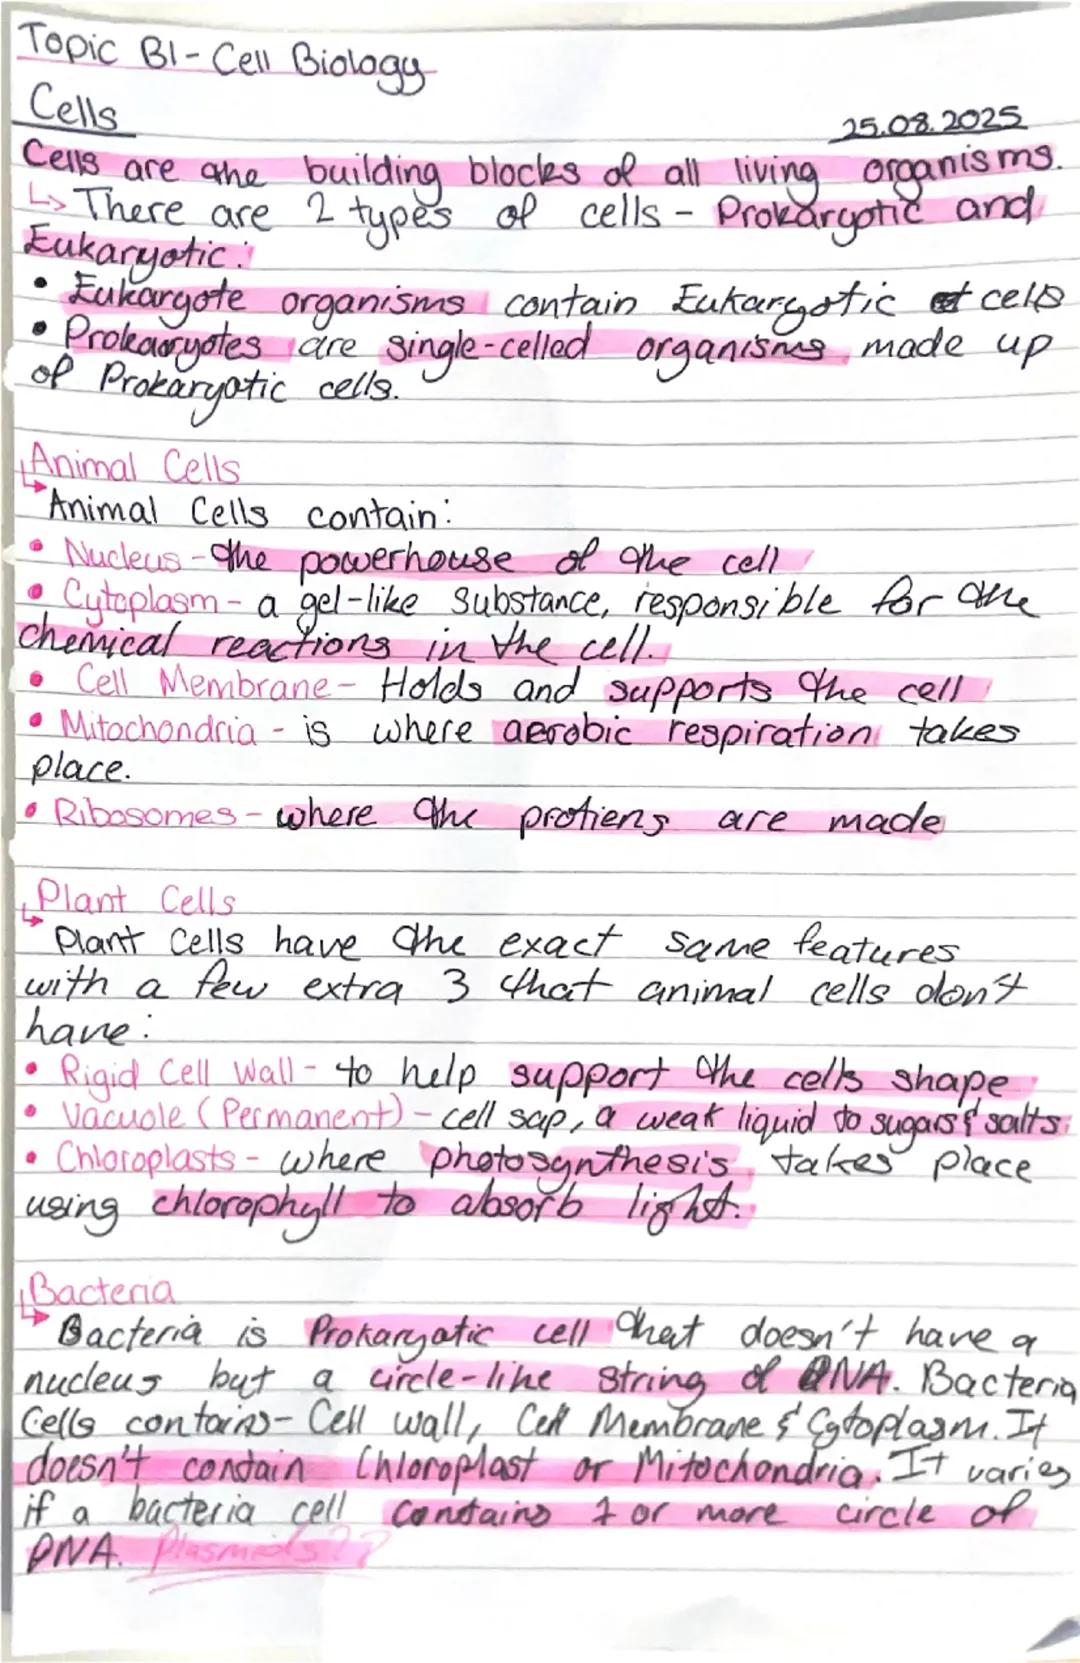 Topic B1 - Cell Biology
Cells
25.08.2025
Cells are the building blocks of all living organisms.
↳ There are 2 types of cells - Prokaryotic and
Eukaryotic:
• Eukaryote organisms contain Eukaryotic cells
• Prokaryotes are single-celled organisms made up
of Prokaryotic cells.
Animal Cells
↳ Animal Cells contain:
• Nucleus - the powerhouse of the cell
• Cytoplasm - a gel-like substance, responsible for the
chemical reactions in the cell.
• Cell Membrane - Holds and supports the cell
• Mitochondria - is where aerobic respiration takes
place.
• Ribosomes - where the protiens are made
Plant Cells
↳ Plant Cells have the exact same features
with a few extra 3 that animal cells don't
have:
• Rigid Cell Wall - to help support the cells shape
• Vacuole (Permanent) - cell sap, a weak liquid to sugars & salts.
• Chloroplasts - where photosynthesis takes place
using chlorophyll to absorb light.
Bacteria
↳ Bacteria is Prokaryotic cell that doesn't have a
nucleus but a circle-like string of DNA. Bacteria
Cells contains - Cell wall, Cell Membrane & Cytoplasm. It
doesn't contain Chloroplast or Mitochondria. It varies
if a bacteria cell contains 1 or more circle of
DNA. Plasmids??